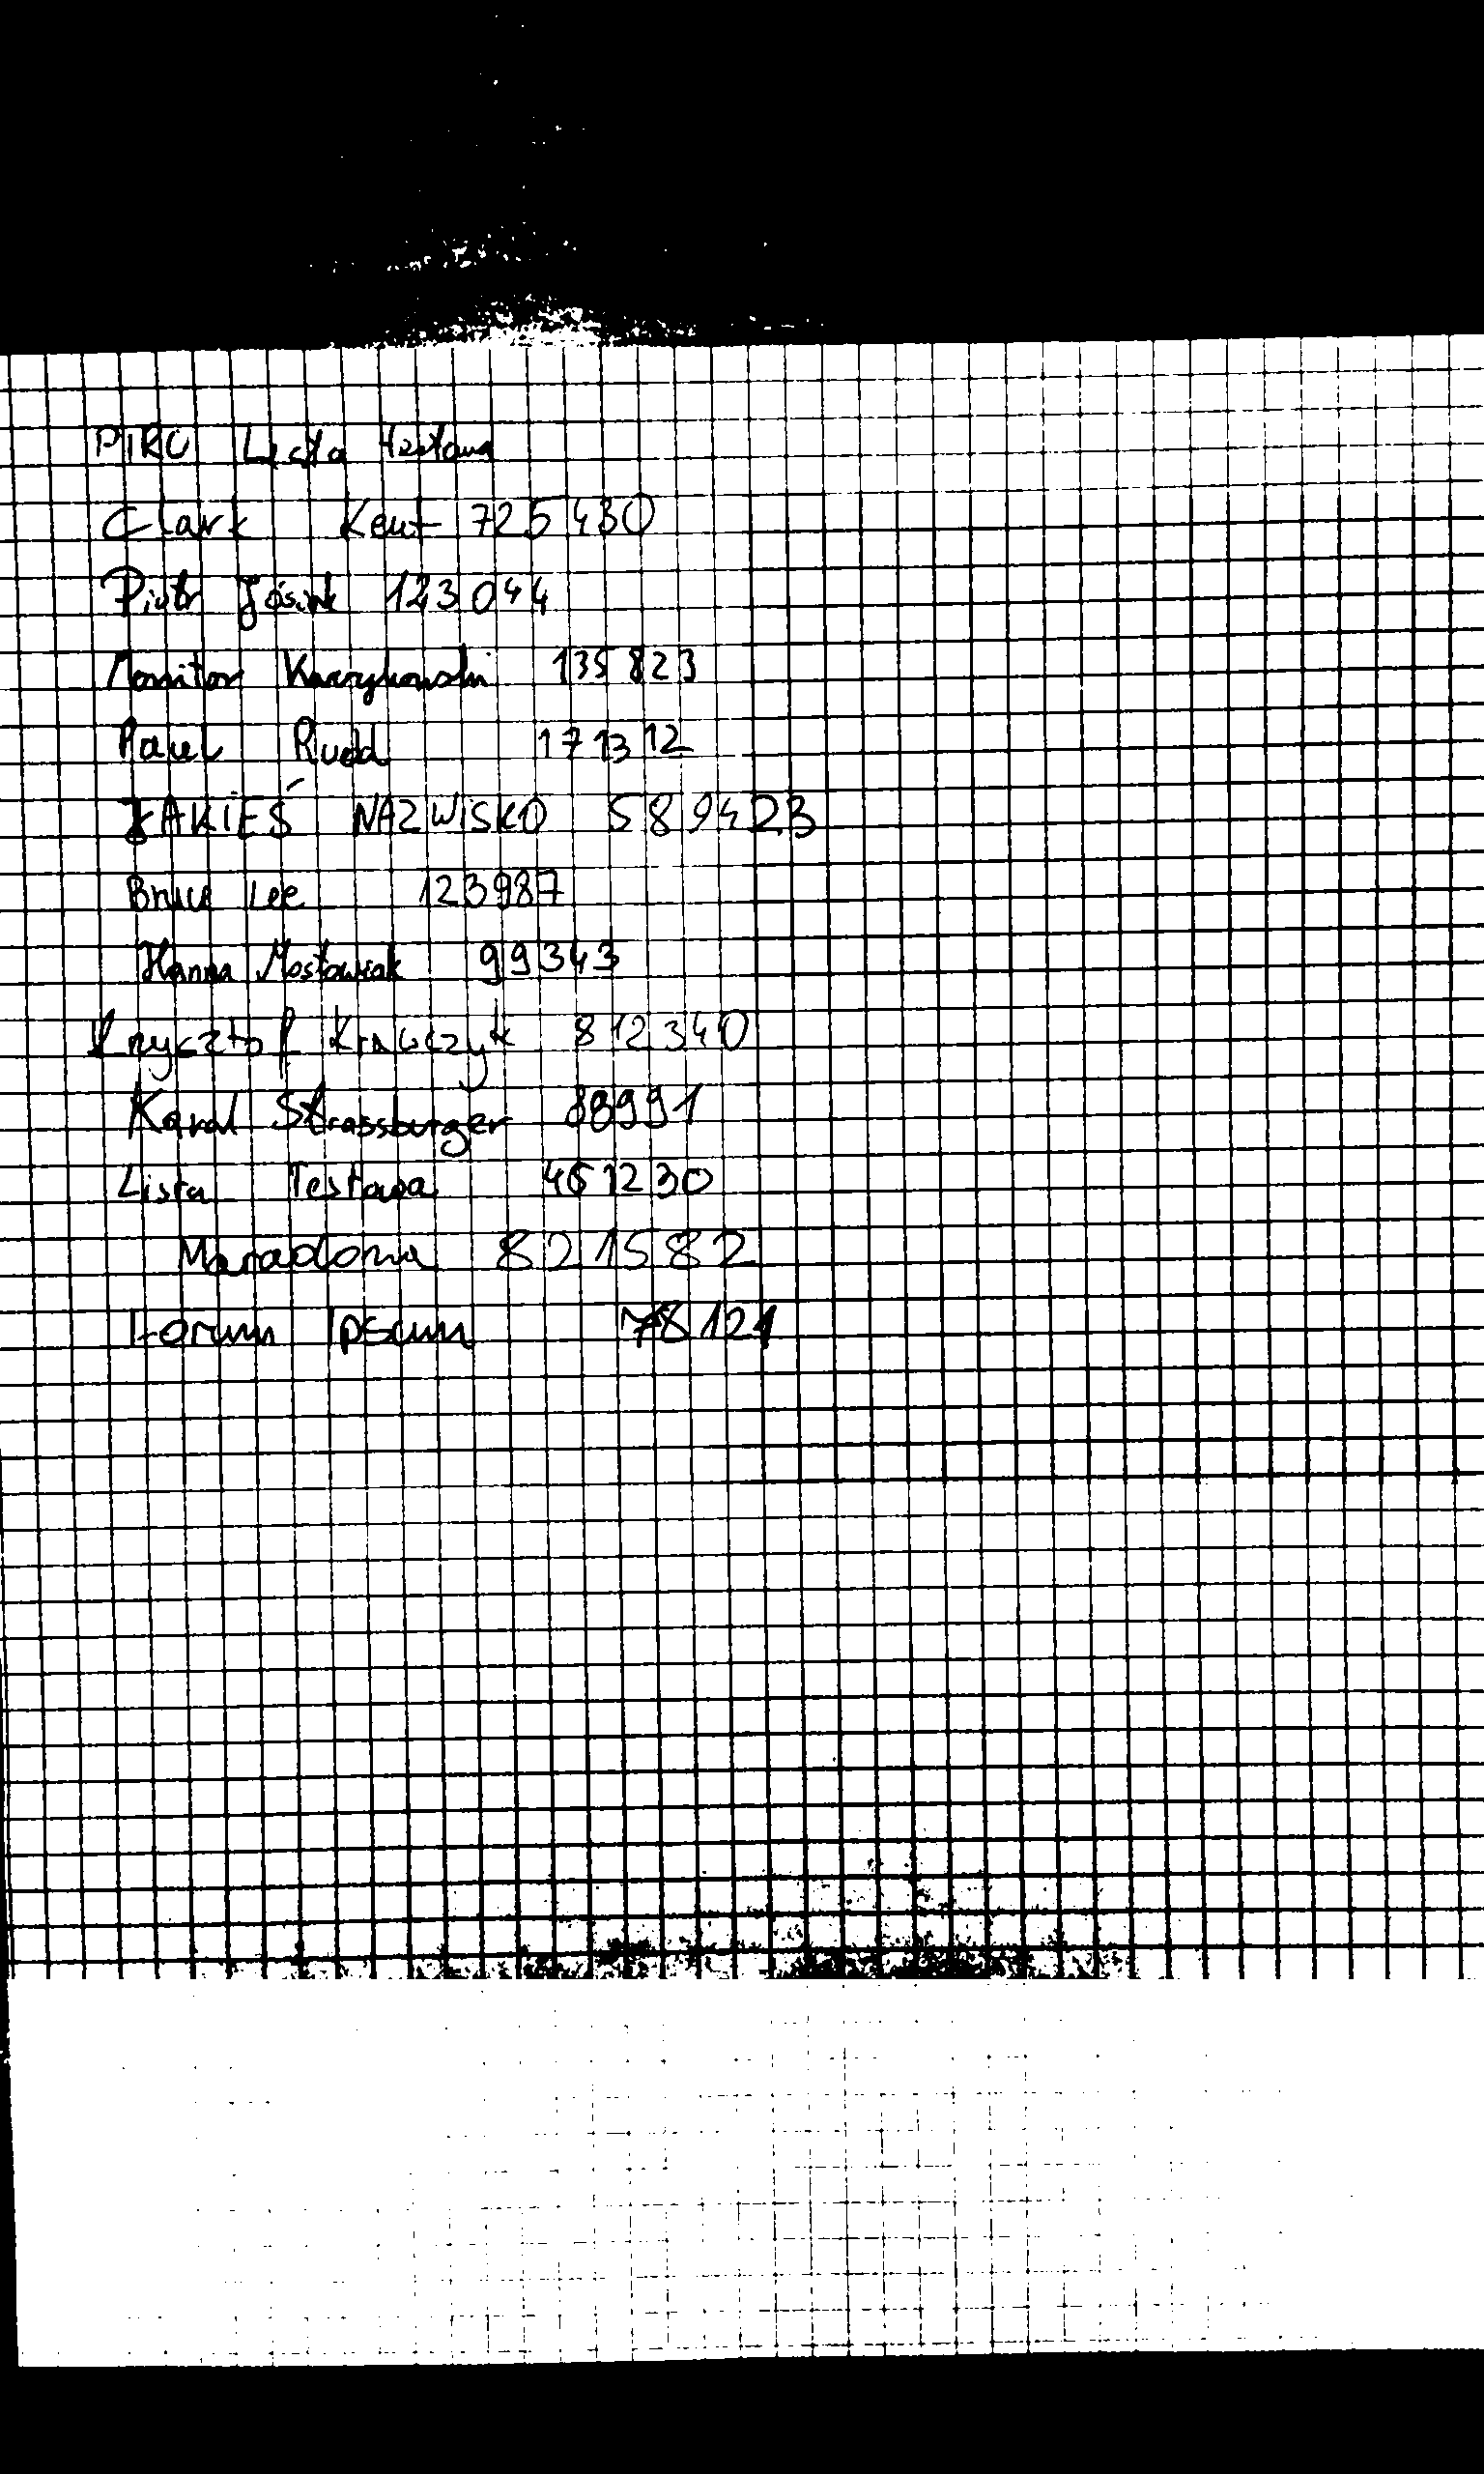 PIRO Lista testowa
Clark Kent 725430
Piotr Jósik 123044
Monitor Kaczykowski 135823
Paweł Rudd 171312
JAKIEŚ NAZWISKO 589423
Bruce Lee 123987
Hanna Mostowiak 99343
Krycztof Krawczyk 812340
Karol Strassburger 88991
Lista Testowa 461230
Maradona 821582
Lorum Ipsum 78121